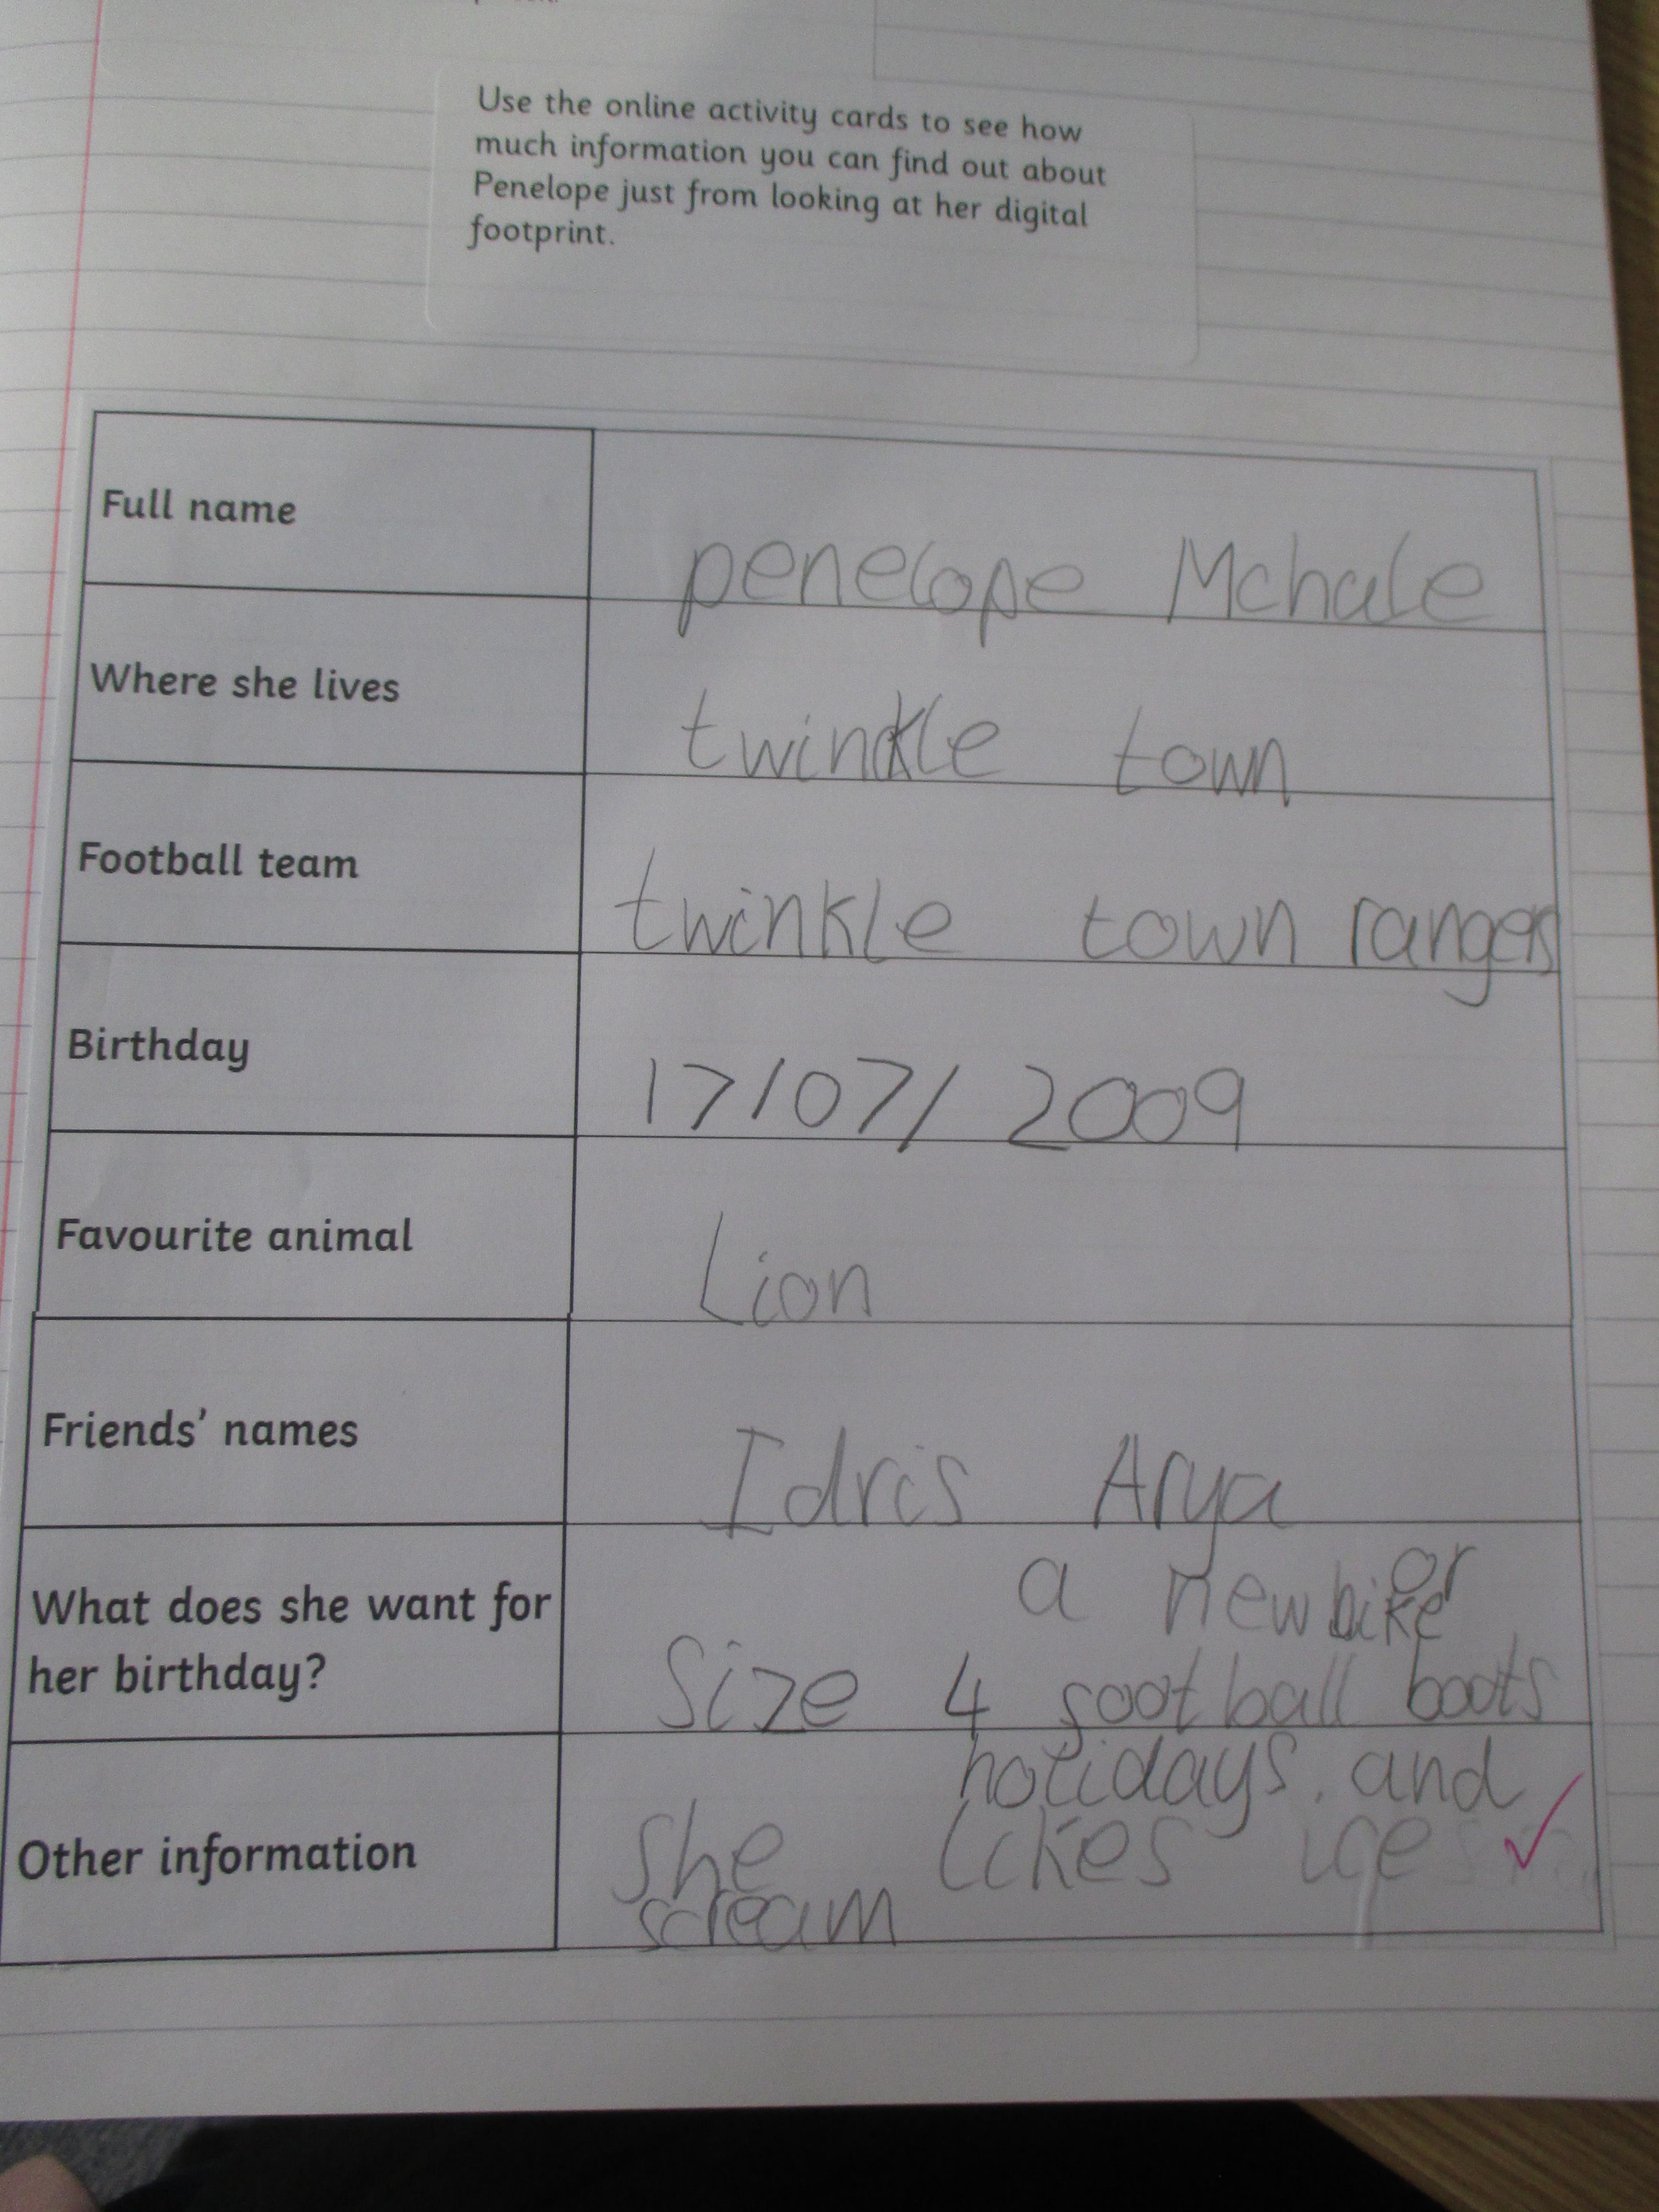 Use the online activity cards to see how
much information you can find out about
Penelope just from looking at her digital
footprint.
Full name
penelope Mchale
Where she lives
twinkle town
Football team
twinkle town rangers
Birthday
17/07/2009
Favourite animal
Lion
Friends' names
Idris Arya
What does she want for
her birthday?
a new bike or
Size 4 football boots
Other information
holidays. and
She likes ice
scream